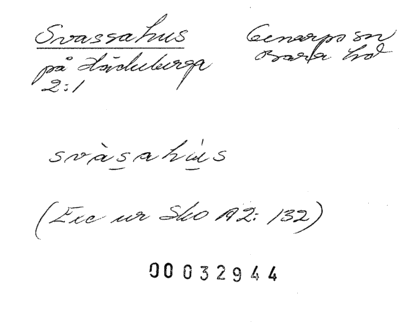 Svassahus Genarps sn
på Häckeberga Bara hd
2:1
svàsahùs
(Exc ur Sko A2: 132)
00032944